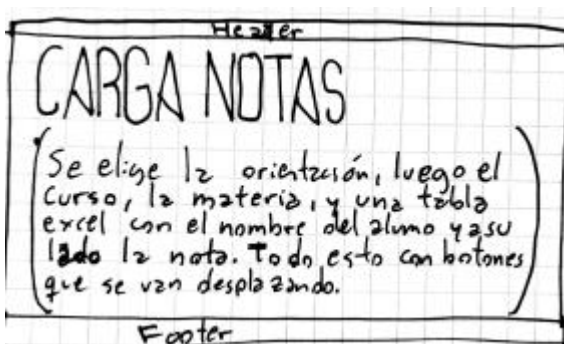 Header
CARGA NOTAS
(Se elige la orientación, luego el
curso, la materia, y una tabla
excel con el nombre del alumno y a su
lado la nota. Todo esto con botones
que se van desplazando.)
Footer